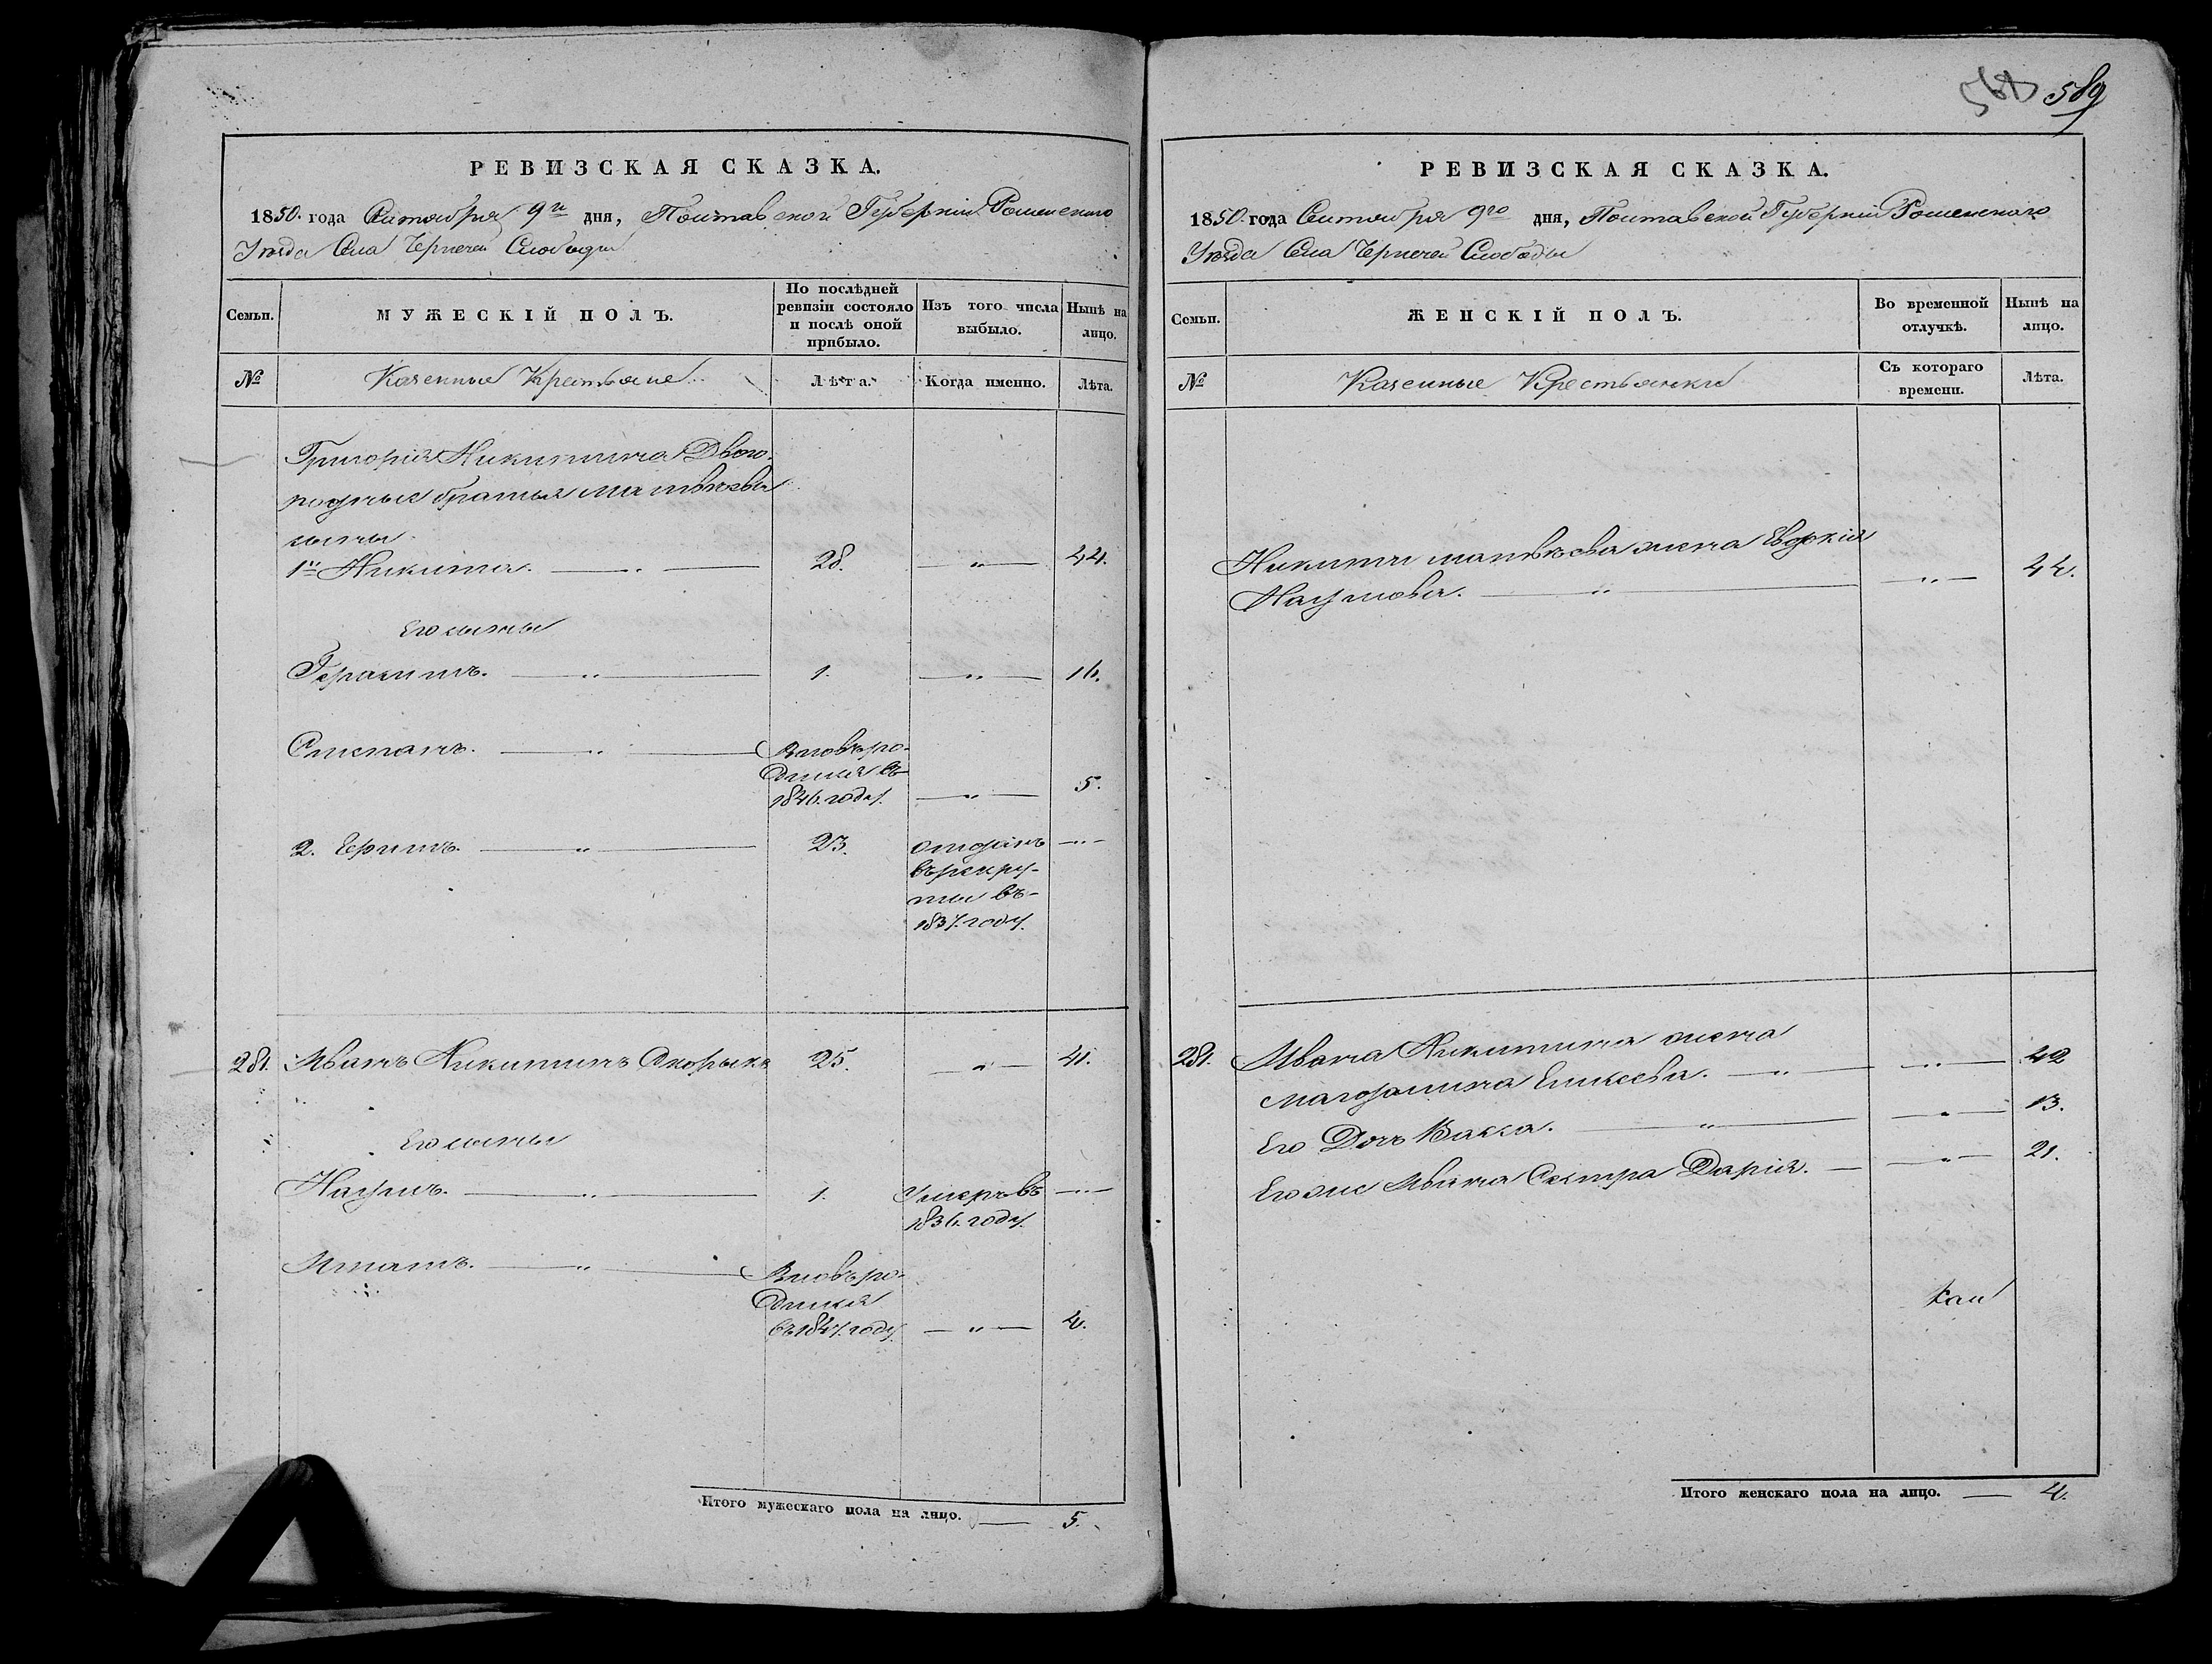 589
РЕВИЗСКАЯ СКАЗКА.
1850. года Сентября 9го дня, Полтавской Губерніи Роменскаго
Уѣзда Села Чернечей Слободы
Семьи.
МУЖЕСКІЙ ПОЛЪ.
По послѣдней
ревизіи состояло
и послѣ оной
прибыло.
Изъ того числа
выбыло.
Нынѣ на
лицо.
№
Казенные Крестьяне
Лѣта.
Когда именно.
Лѣта.
Григорія Никитина Двою-
родные братья Матвѣевы
сыны
1й Никита. — " — 28. — " — 44.
Его сыны
Герасимъ. — " — 1. — " — 16.
Степанъ. — " — Вновь ро-
дился въ
1846. году. — " — 5.
2. — " — 23. отданъ — " —
въ рекру-
ты въ
1837. году.
281. Иванъ Никитинъ 25. — " — 41.
Его сыны
Наумъ. — " — 1. Умеръ въ — " —
1836. году.
Игнатъ. — " — Вновь ро-
дился
въ 1847. году — " — 4.
Итого мужескаго пола на лицо. — 5.
РЕВИЗСКАЯ СКАЗКА.
1850. года Сентября 9го дня, Полтавской Губерніи Роменскаго
Уѣзда Села Чернечей Слободы
Семьи.
ЖЕНСКІЙ ПОЛЪ.
Во временной
отлучкѣ.
Нынѣ на
лицо.
№
Казенные Крестьянки
Съ котораго
времени.
Лѣта.
Никиты Матвѣева жена Евдокія
Наумова. — " — — " — 44.
281. Ивана Никитина жена
Магдалина Елисеева. — " — — " — 42
Его Дочь Васса. — " — — " — 13.
Его же Ивана Сестра Дарія. — — " — 21.
Итого женскаго пола на лицо. — 4.